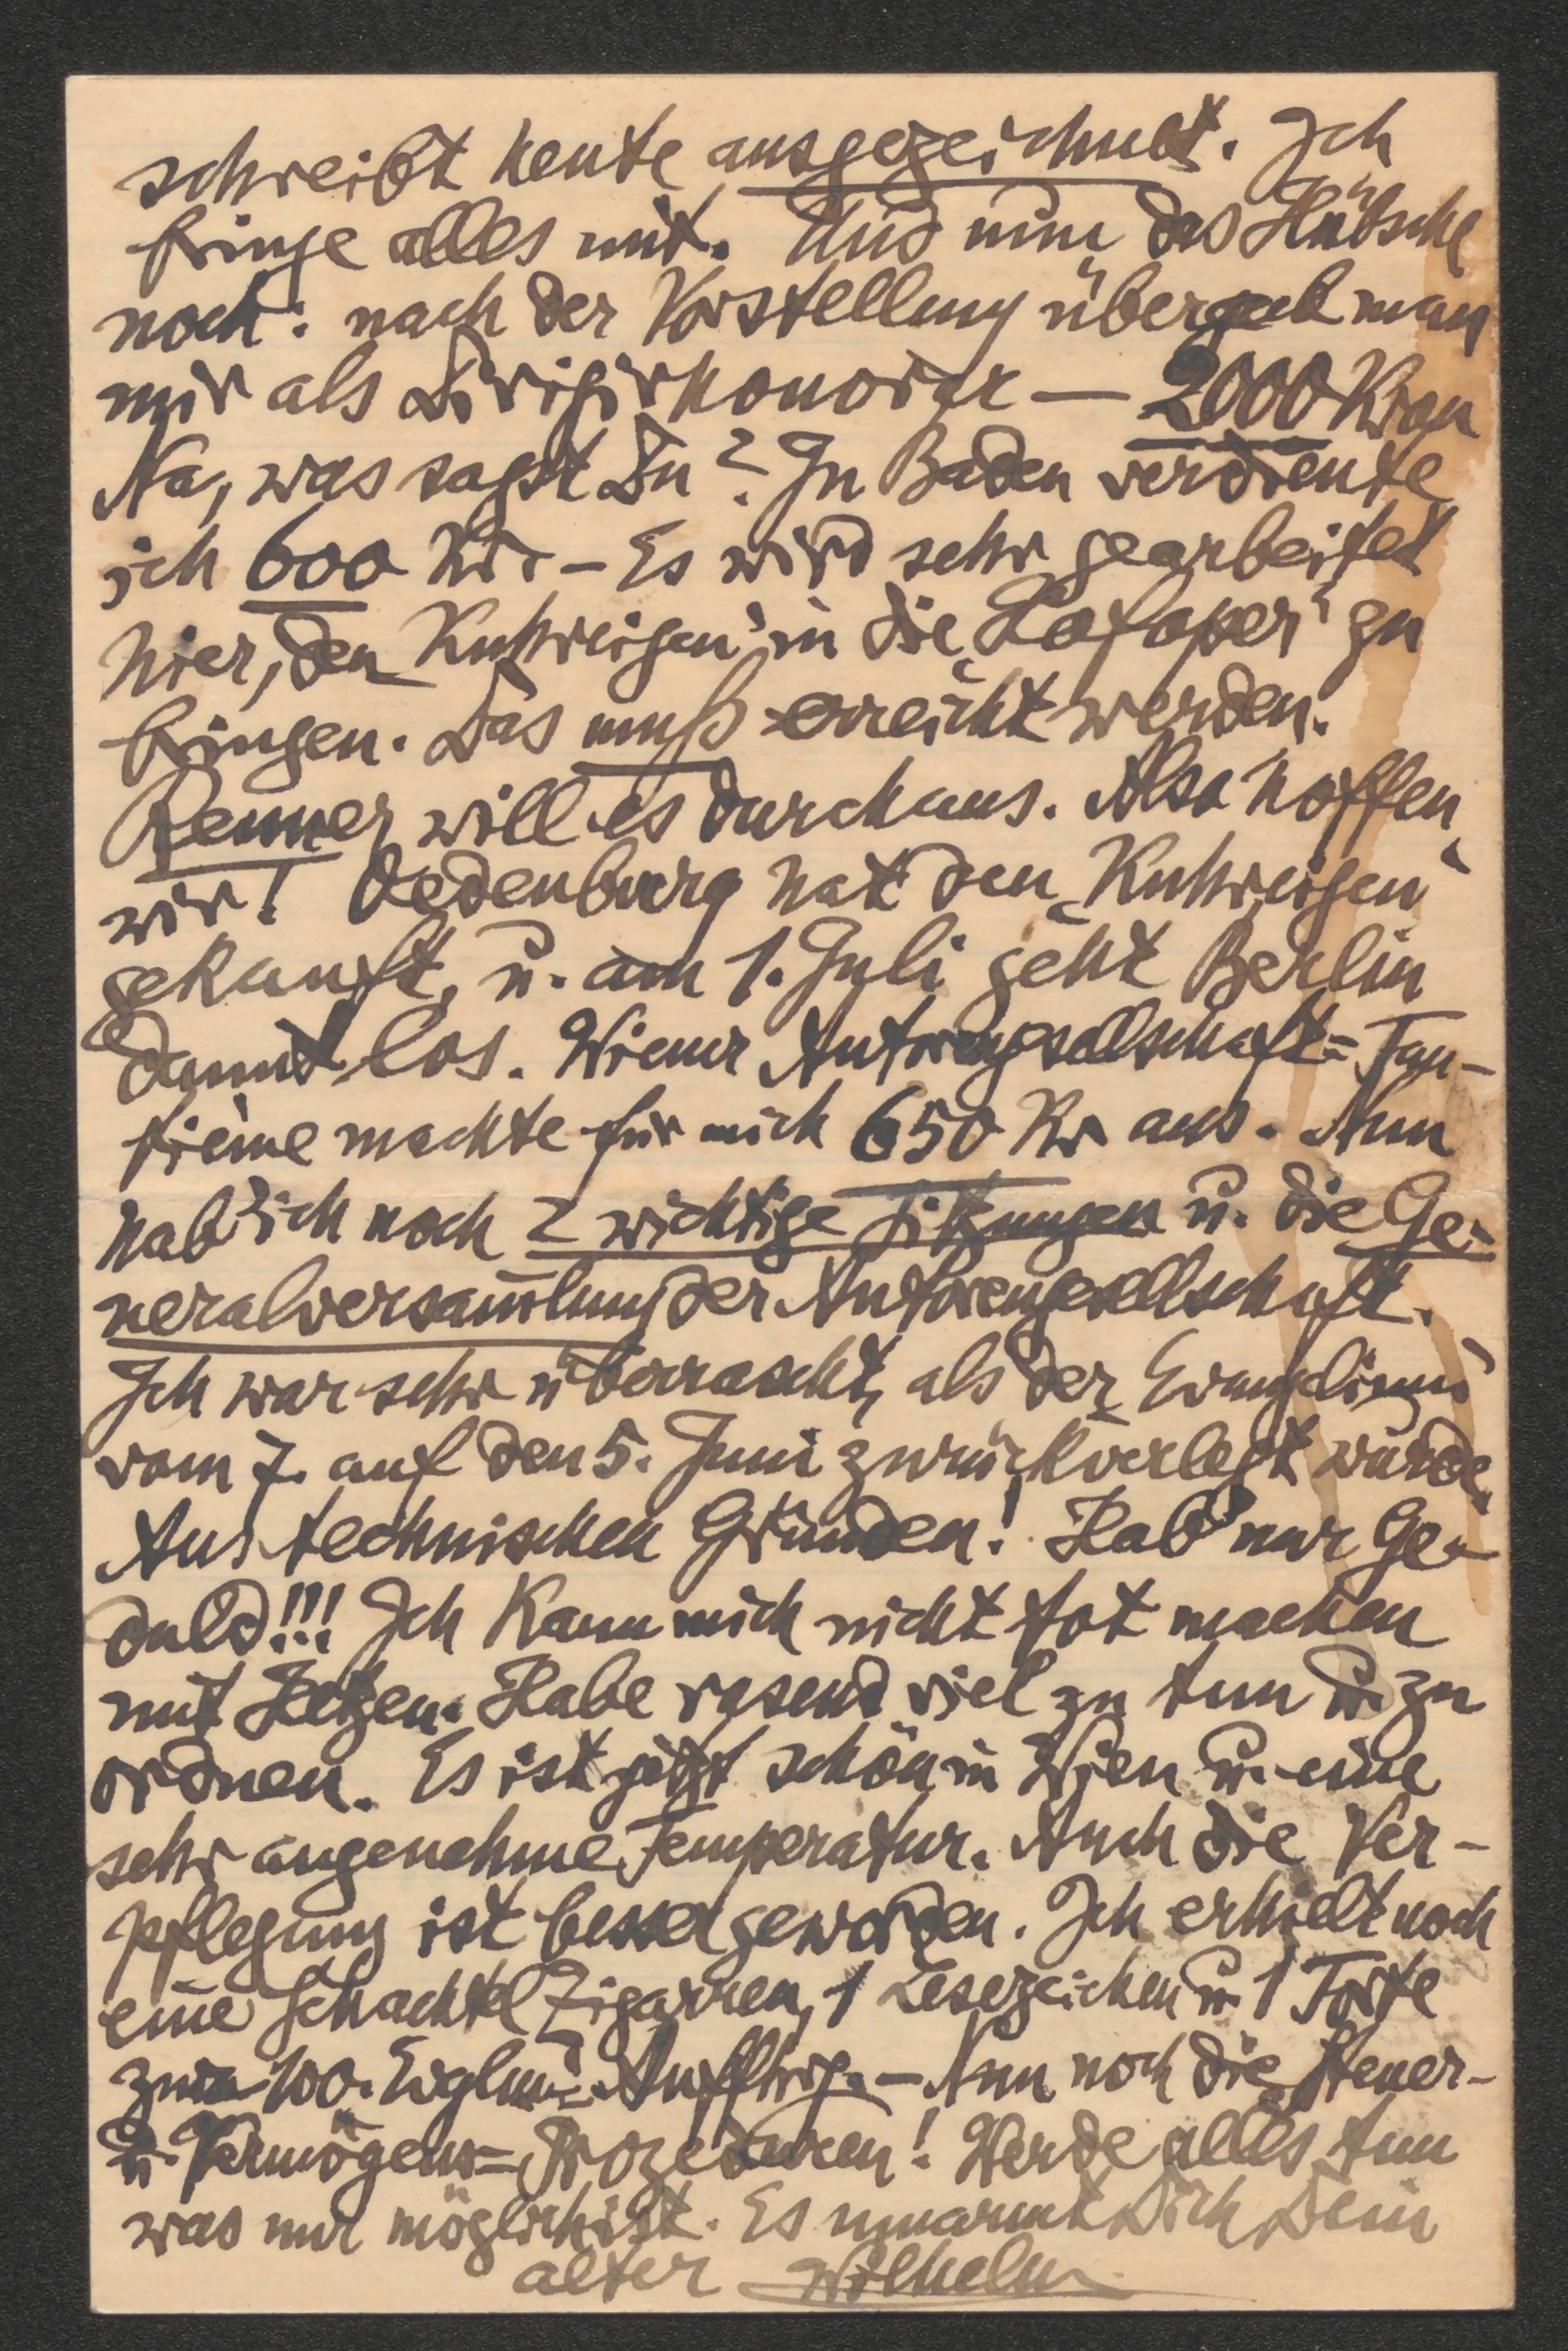 schreibt heute ausgezeichnet. Ich
bringe alles mit. Und nun das Hübsche
noch: nach der Vorstellung übergab man
mir als Dirigirhonorar — 2000 Kron
Na, was sagst Du? In Baden verdiente
ich 600 Kr. – Es wird sehr gearbeitet
hier, den „Kuhreigen" in die „Hofoper" zu
bringen. Das muß erreicht werden.
Renner will es durchaus. Also hoffen
wir! Oedenburg hat den „Kuhreigen"
gekauft, u. am 1. Juli geht Berlin
damit los. Wiener Autorengesellschaft=Tan-
tième machte für mich 650 Kr aus. Nun
hab' ich noch 2 wichtige Sitzungen u. die Ge-
neralversam̄lung der Autorengesellschaft.
Ich war sehr überrascht, als der „Evangelimann"
vom 7. auf den 5. Juni zurückverlegt wurde.
Aus technischen Gründen! Hab' nur Ge-
duld!!! Ich kann mich nicht tot machen
mit Hetzen. Habe rasend viel zu tun u. zu
ordnen. Es ist jetzt schön in Wien u. eine
sehr angenehme Temperatur. Auch die Ver-
pflegung ist besser geworden. Ich erhielt noch
eine Schachtel Zigarren, 1 Lesezeichen u. 1 Torte
zur 100. Evglm.=Aufführg. – Nun noch die Steuer-
u. Vermögens=Prozeduren! Werde alles tun
was nur möglich ist. Es umarmt Dich Dein
alter Wilhelm